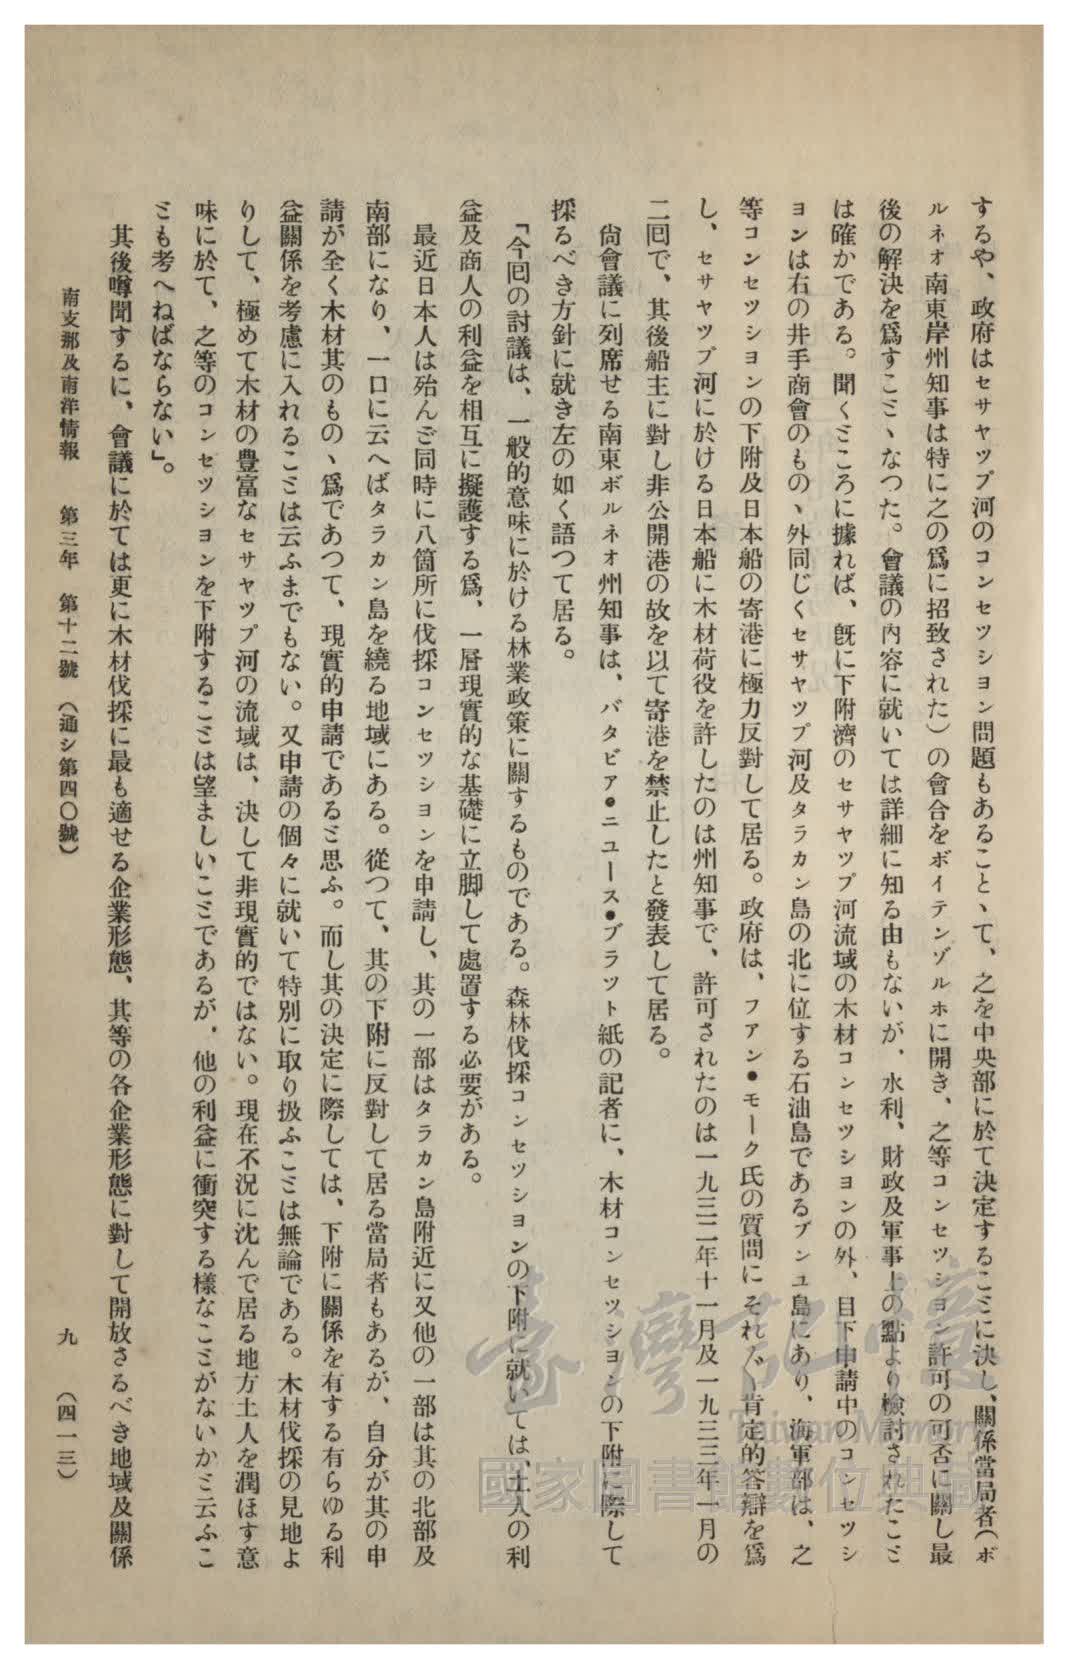 するや、政府はセサヤツプ河のコンセツシヨン問題もあることゝて、之を中央部に於て決定することに決し、關係當局者(ボ
ルネオ南東岸州知事は特に之の爲に招致された)の會合をボイテンゾルホに開き、之等コンセツシヨン許可の可否に關し最
後の解決を爲すことゝなつた。會議の內容に就いては詳細に知る由もないが、水利、財政及軍事上の點より檢討されたこと
は確かである。聞くところに據れば、旣に下附濟のセサヤツプ河流域の木材コンセツシヨンの外、目下申請中のコンセツシ
ヨンは右の井手商會のものゝ外同じくセサヤツプ河及タラカン島の北に位する石油島であるブンユ島にあり、海軍部は、之
等コンセツシヨンの下附及日本船の寄港に極力反對して居る。政府は、フアン•モーク氏の質問にそれ〲肯定的答辯を爲
し、セサヤツプ河に於ける日本船に木材荷役を許したのは州知事で、許可されたのは一九三二年十一月及一九三三年一月の
二回で、其後船主に對し非公開港の故を以て寄港を禁止したと發表して居る。
尙會議に列席せる南東ボルネオ州知事は、バタビア•ニユース•ブラツト紙の記者に、木材コンセツシヨンの下附に際して
採るべき方針に就き左の如く語つて居る。
「今回の討議は、一般的意味に於ける林業政策に關するものである。森林伐採コンセツシヨンの下附に就いては、土人の利
益及商人の利益を相互に擬護する爲、一層現實的な基礎に立脚して處置する必要がある。
最近日本人は殆んど同時に八箇所に伐採コンセツシヨンを申請し、其の一部はタラカン島附近に又他の一部は其の北部及
南部になり、一口に云へばタラカン島を繞る地域にある。從つて、其の下附に反對して居る當局者もあるが、自分が其の申
請が全く木材其のものゝ爲であつて、現實的申請であると思ふ。而し其の決定に際しては、下附に關係を有する有らゆる利
益關係を考慮に入れることは云ふまでもない。又申請の個々に就いて特別に取り扱ふことは無論である。木材伐採の見地よ
りして、極めて木材の豐富なセサヤツプ河の流域は、決して非現實的ではない。現在不況に沈んで居る地方土人を潤ほす意
味に於て、之等のコンセツシヨンを下附することは望ましいことであるが、他の利益に衝突する樣なことがないかと云ふこ
とも考へねばならない」。
其後噂聞するに、會議に於ては更に木材伐採に最も適せる企業形態、其等の各企業形態に對して開放さるべき地域及關係
南支那及南洋情報 第三年 第十二號 (通シ第四〇號) 九 (四一三)
臺灣記憶
Taiwan Memory
國家圖書館數位典藏